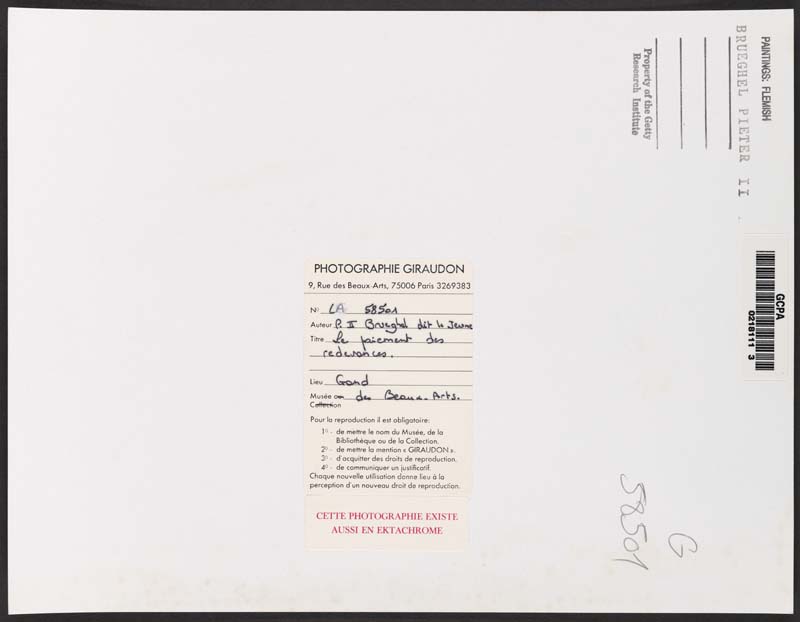 PAINTINGS: FLEMISH
BRUEGHEL PIETER II
Property of the Getty
Research Institute
GCPA
0218111 3
PHOTOGRAPHIE GIRAUDON
9, Rue des Beaux-Arts, 75006 Paris 3269383
No LA 58501
Auteur P. II Brueghel dit le Jeune
Titre Le paiement des
redevances.
Lieu Gand
Musée ou des Beaux-Arts.
Collection
Pour la reproduction il est obligatoire:
1o - de mettre le nom du Musée, de la
Bibliothèque ou de la Collection.
2o - de mettre la mention « GIRAUDON ».
3o - d'acquitter des droits de reproduction.
4o - de communiquer un justificatif.
Chaque nouvelle utilisation donne lieu à la
perception d'un nouveau droit de reproduction.
CETTE PHOTOGRAPHIE EXISTE
AUSSI EN EKTACHROME
G
58501